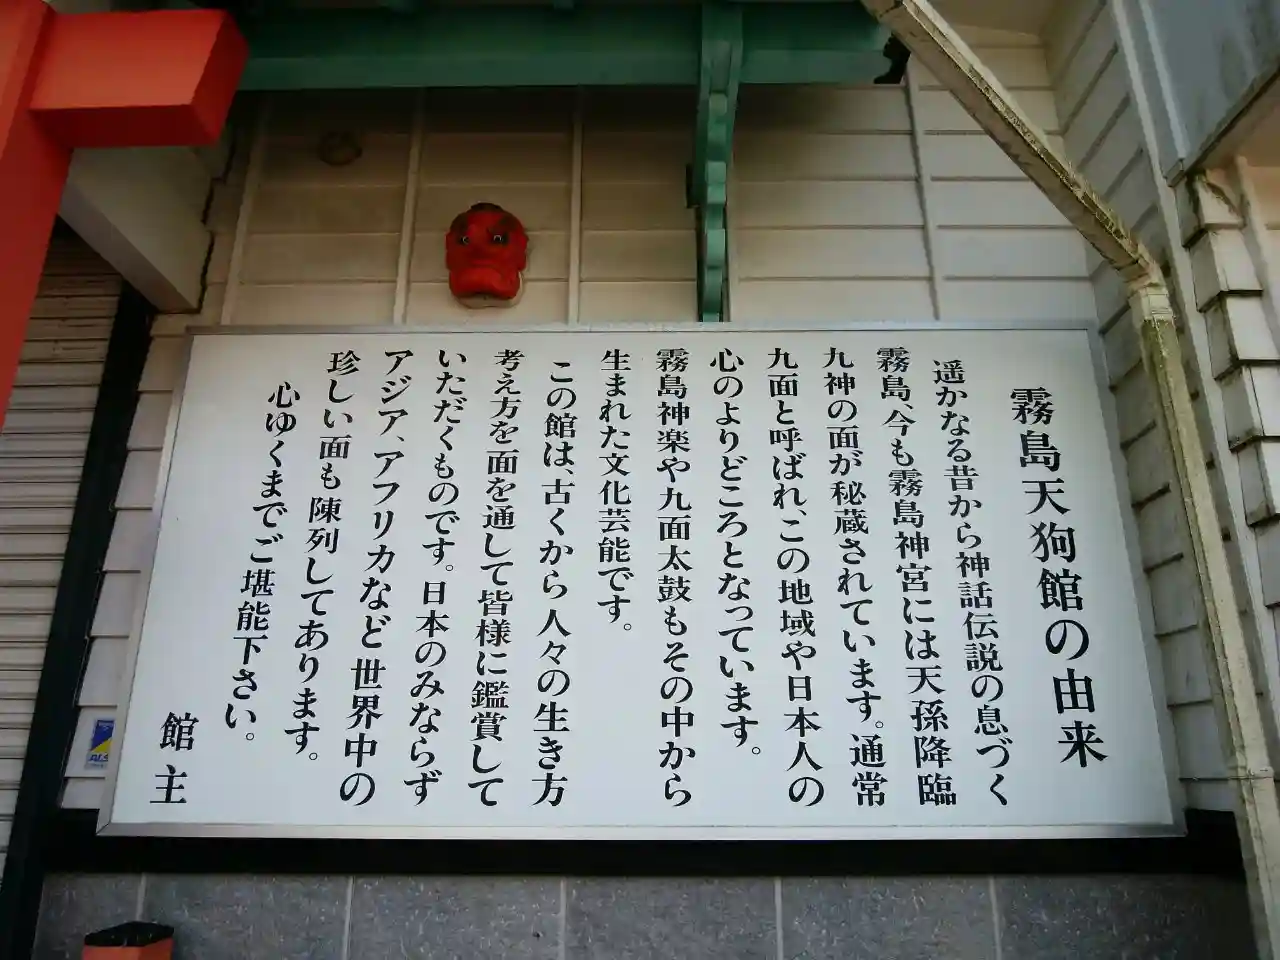 霧島天狗館の由来
遥かなる昔から神話伝説の息づく
霧島、今も霧島神宮には天孫降臨
九神の面が秘蔵されています。通常
九面と呼ばれ、この地域や日本人の
心のよりどころとなっています。
霧島神楽や九面太鼓もその中から
生まれた文化芸能です。
この館は、古くから人々の生き方
考え方を面を通して皆様に鑑賞して
いただくものです。日本のみならず
アジア、アフリカなど世界中の
珍しい面も陳列してあります。
心ゆくまでご堪能下さい。
館主